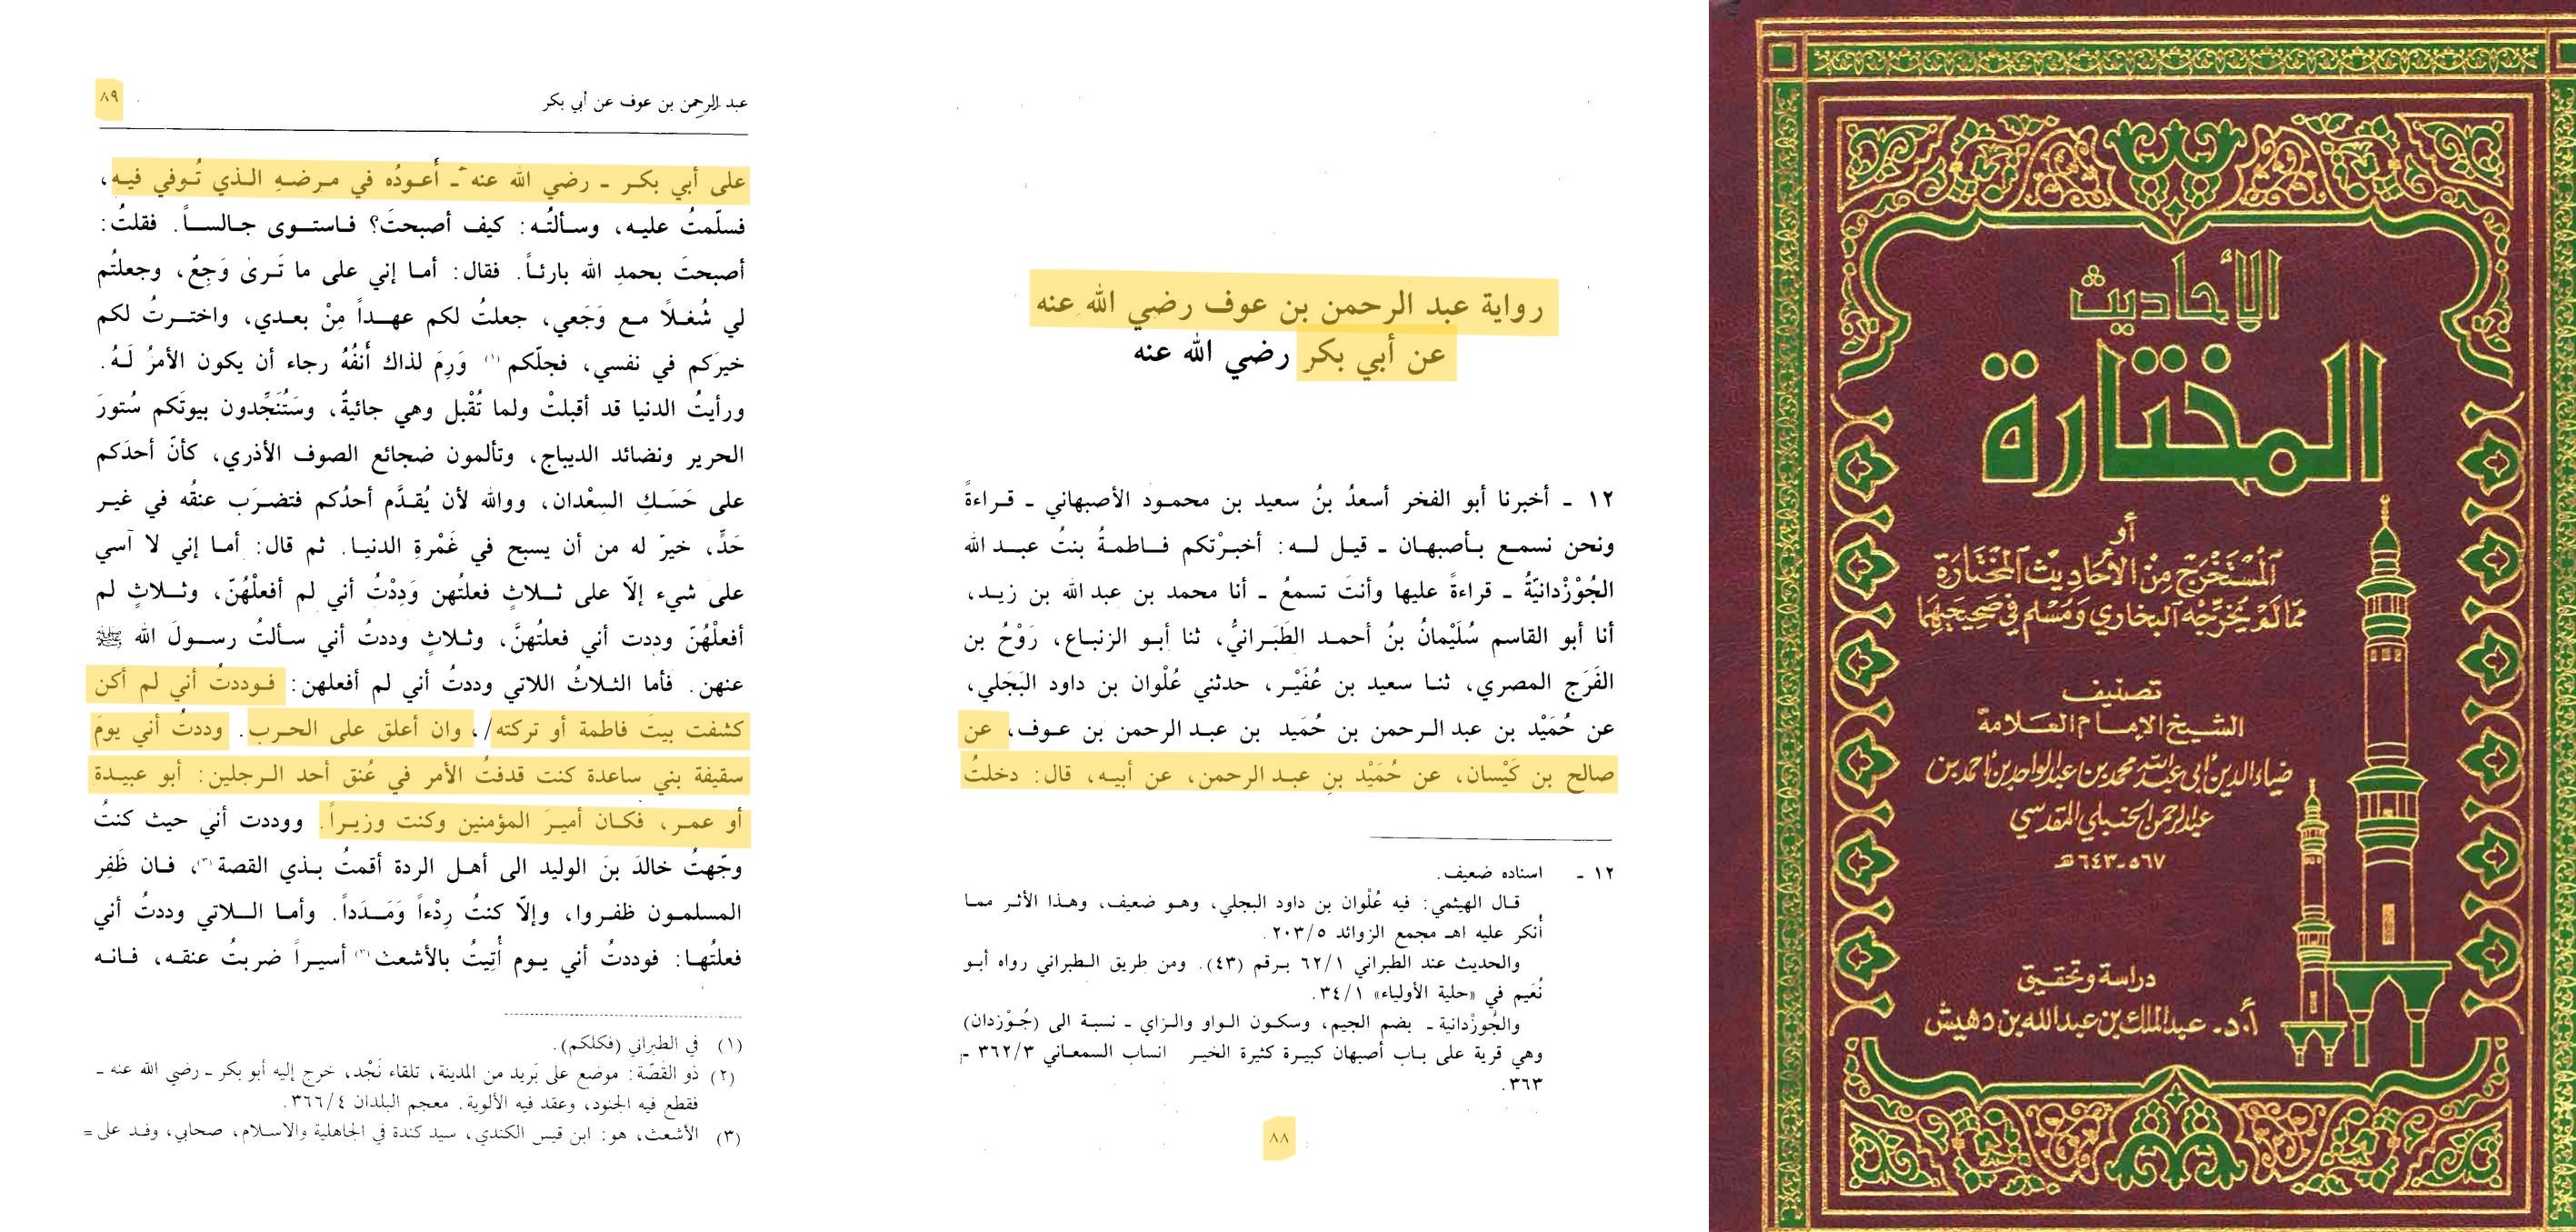 الأحاديث
المختارة
أو
المستخرج من الأحاديث المختارة
مما لم يخرجه البخاري ومسلم في صحيحيهما
تصنيف
الشيخ الإمام العلامة
ضياء الدين أبي عبد الله محمد بن عبد الواحد بن أحمد بن
عبد الرحمن الحنبلي المقدسي
٥٦٧-٦٤٣هـ
دراسة وتحقيق
أ.د. عبد الملك بن عبد الله بن دهيش
رواية عبد الرحمن بن عوف رضي الله عنه
عن أبي بكر رضي الله عنه
١٢ - أخبرنا أبو الفخر أسعدُ بنُ سعيد بن محمود الأصبهاني - قراءةً
ونحن نسمع بأصبهان - قيل له: أخبرْتكم فاطمةُ بنتُ عبد الله
الجُوْزْدانيّةُ - قراءةً عليها وأنتَ تسمعُ - أنا محمد بن عبد الله بن زيد،
أنا أبو القاسم سُلَيْمانُ بنُ أحمد الطَبَرانيُّ، ثنا أبو الزنباع، رَوْحُ بن
الفَرَج المصري، ثنا سعيد بن عُفَيْر، حدثني عُلْوان بن داود البَجَلي،
عن حُمَيْد بن عبد الرحمن بن حُمَيد بن عبد الرحمن بن عوف، عن
صالح بن كَيْسان، عن حُمَيْد بنِ عبد الرحمن، عن أبيه، قال: دخلتُ
١٢ - اسناده ضعيف.
قال الهيثمي: فيه عُلْوان بن داود البجلي، وهو ضعيف، وهذا الأثر مما
أُنكر عليه اهـ مجمع الزوائد ٢٠٣/٥.
والحديث عند الطبراني ٦٢/١ برقم (٤٣). ومن طريق الطبراني رواه أبو
نُعَيم في «حلية الأولياء» ٣٤/١.
والجُوزْدانية - بضم الجيم، وسكون الواو والزاي - نسبة الى (جُوْزدان)
وهي قرية على باب أصبهان كبيرة كثيرة الخير انساب السمعاني ٣٦٢/٣ -
٣٦٣.
٨٨
عبد الرحمن بن عوف عن أبي بكر
٨٩
على أبي بكر - رضي الله عنه - أَعودُه في مرضهِ الذي تُوفي فيه،
فسلّمتُ عليه، وسألتُه: كيف أصبحتَ؟ فاستوى جالساً. فقلتُ:
أصبحتَ بحمدِ الله بارئاً. فقال: أما إني على ما تَرىٰ وَجِعٌ، وجعلتُم
لي شُغلًا مع وَجَعي، جعلتُ لكم عهداً مِنْ بعدي، واخترتُ لكم
خيرَكم في نفسي، فجلّكم (١) وَرِمَ لذاك أَنفُهُ رجاء أن يكون الأمرُ لَهُ.
ورأيتُ الدنيا قد أقبلتْ ولما تُقْبل وهي جائيةٌ، وسَتُنَجِّدون بيوتَكم سُتورَ
الحرير ونضائد الديباج، وتألمون ضجائع الصوف الأذري، كأنّ أحدَكم
على حَسَكِ السِعْدان، ووالله لأن يُقدَّم أحدُكم فتضرَب عنقُه في غير
حَدٍّ، خيرٌ له من أن يسبح في غَمْرةِ الدنيا. ثم قال: أما إني لا آسي
على شيء إلّا على ثلاثٍ فعلتُهن وَدِدْتُ أني لم أفعلْهُنّ، وثلاثٍ لم
أفعلْهُنّ وددت أني فعلتُهنَّ، وثلاثٍ وددتُ أني سألتُ رسولَ الله ﷺ
عنهن. فأما الثلاثُ اللاتي وددتُ أني لم أفعلهن: فوددتُ أني لم أكن
كشفت بيتَ فاطمة أو تركته/، وان أعلق على الحرب. وددتُ أني يومَ
سقيفة بني ساعدة كنت قدفتُ الأمر في عُنق أحد الرجلين: أبو عبيدة
أو عمر، فكان أميرَ المؤمنين وكنت وزيراً. ووددت أني حيث كنتُ
وجّهتُ خالدَ بنَ الوليد الى أهل الردة أقمتُ بذي القصة (٢)، فان ظَفِر
المسلمون ظفروا، وإلّا كنتُ رِدْءاً وَمَدَداً. وأما اللاتي وددتُ أني
فعلتُها: فوددتُ أني يوم أُتِيتُ بالأشعث (٣) أسيراً ضربتُ عنقه، فانه
(١) في الطبراني (فكلكم).
(٢) ذو القَصّة: موضع على بَريد من المدينة، تلقاء نَجْد، خرج إليه أبو بكر - رضي الله عنه -
فقطع فيه الجنود، وعقد فيه الألوية. معجم البلدان ٣٦٦/٤.
(٣) الأشعث، هو: ابن قيس الكندي، سيد كندة في الجاهلية والاسلام، صحابي، وفد على =